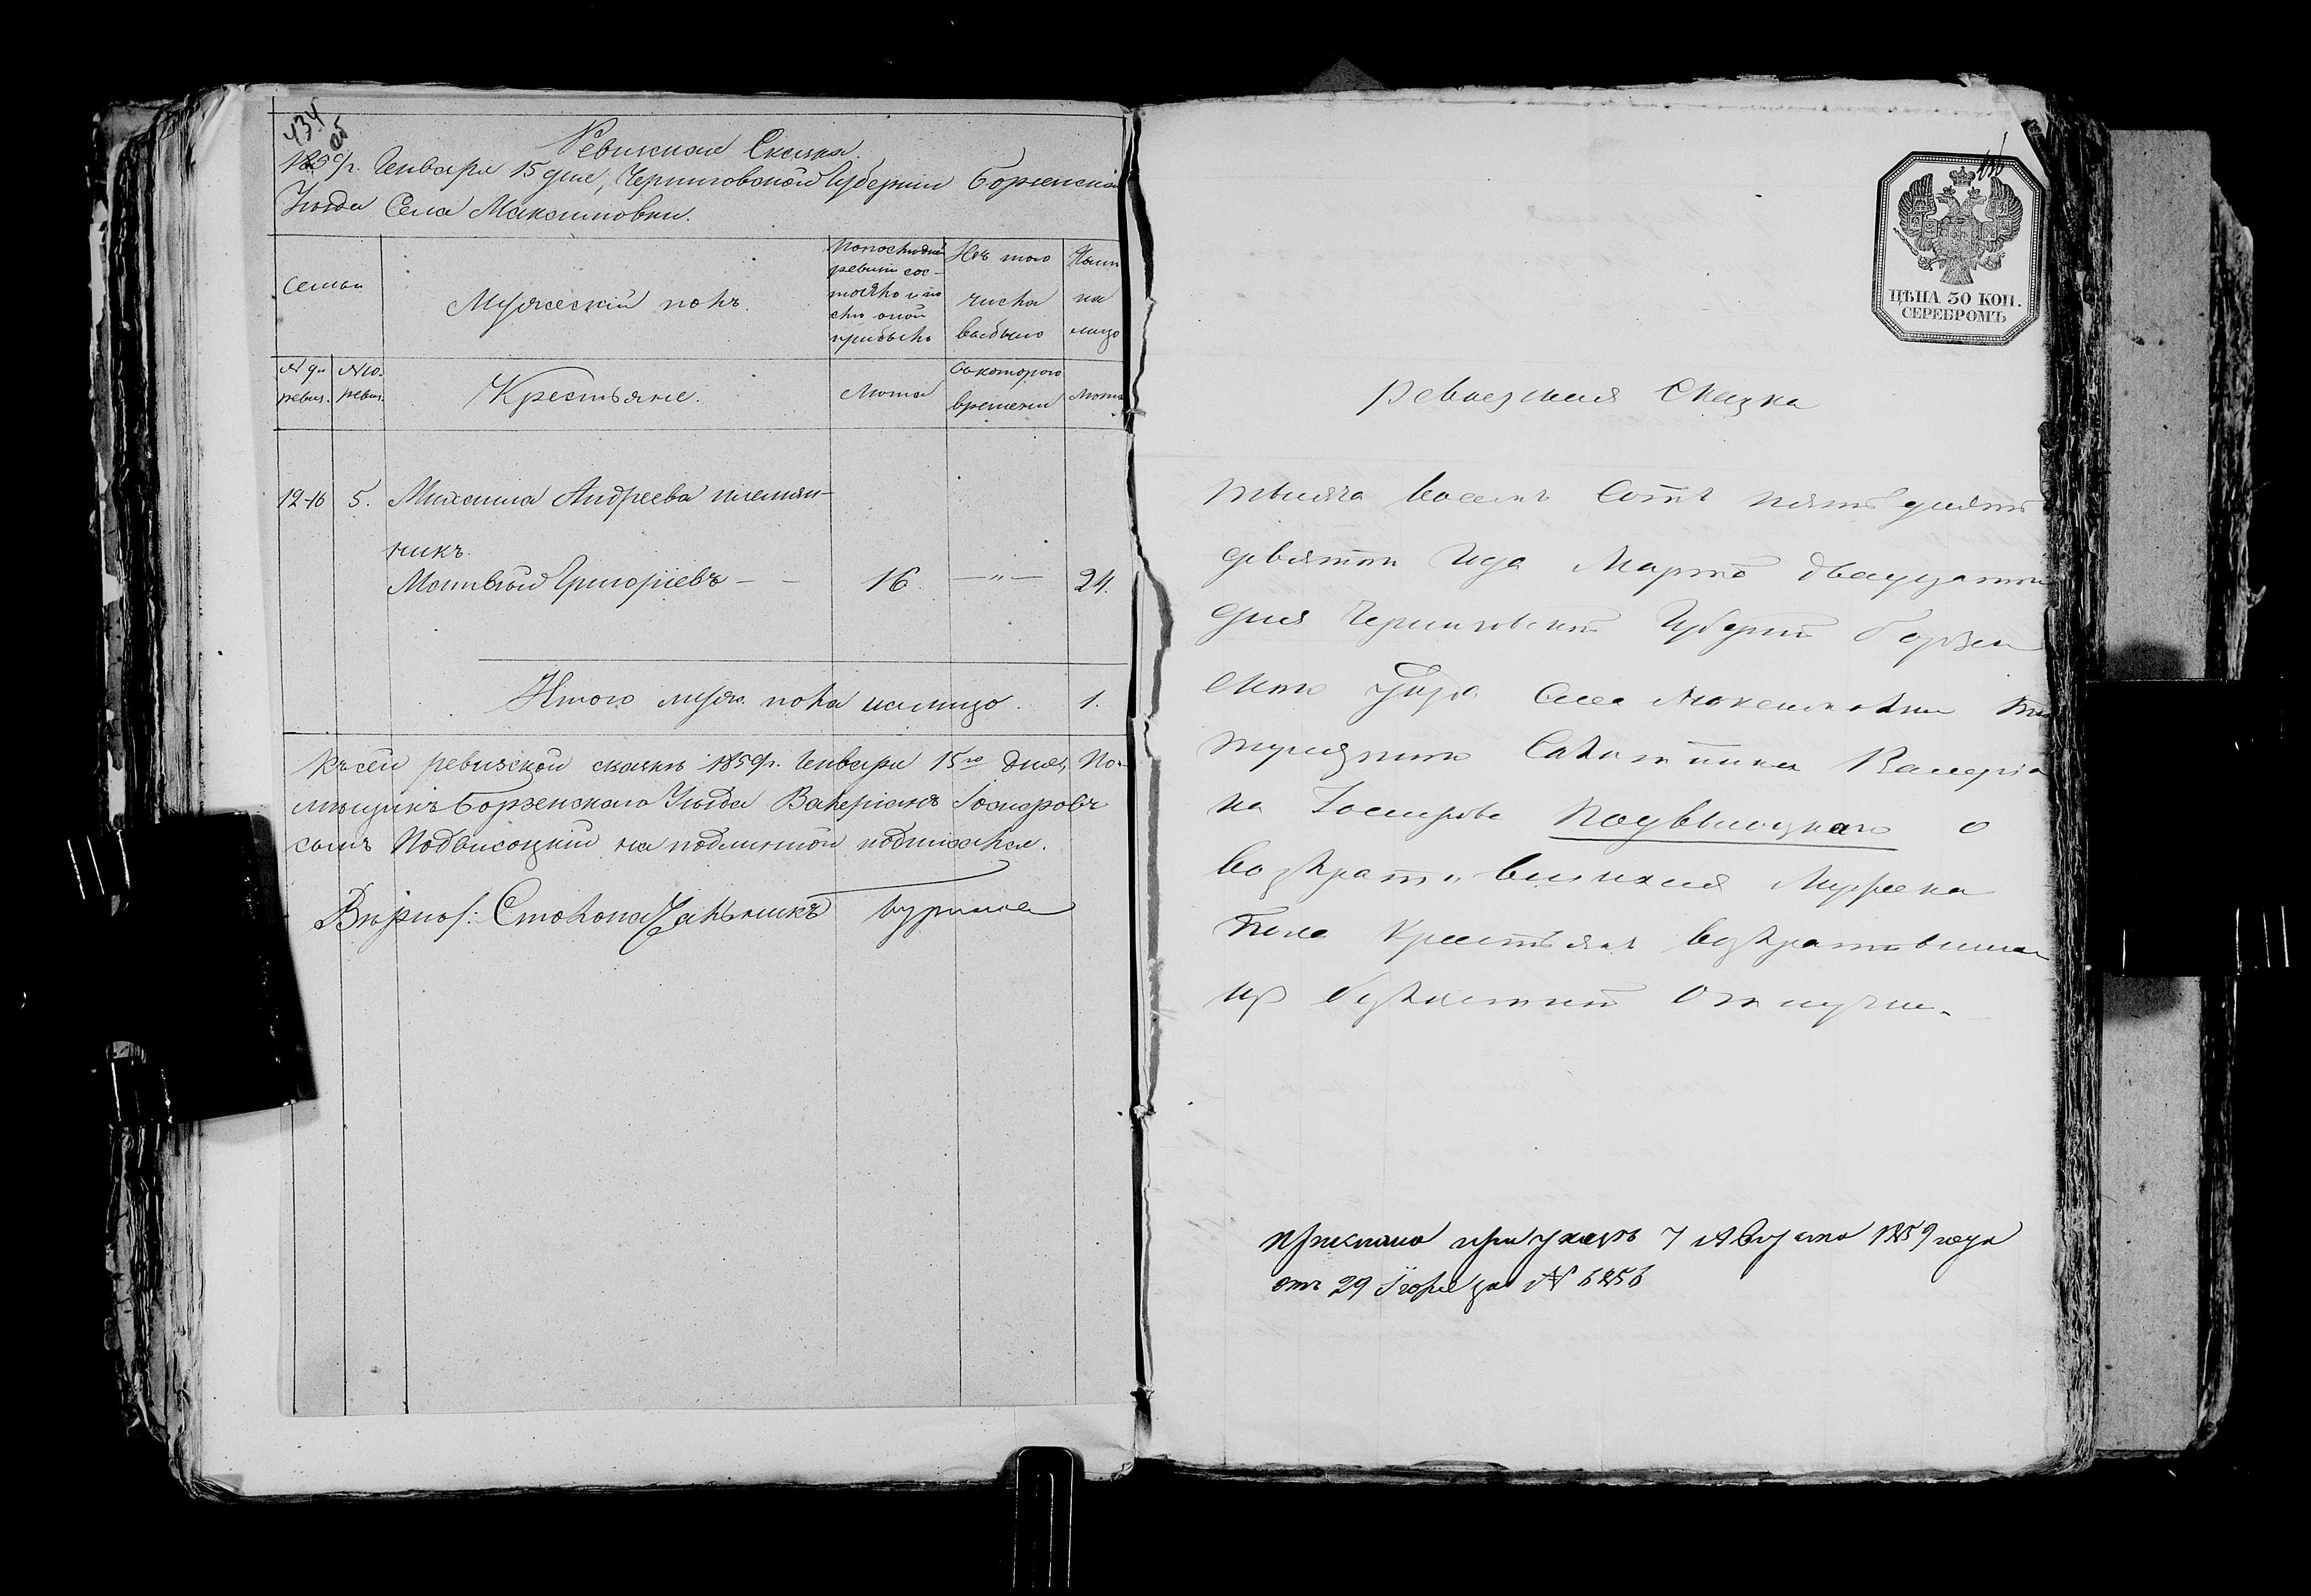 434 об
Ревизская Сказка.
1859 г. Генваря 15 дня, Черниговской Губернии Борзенского
Уѣзда Села Максимовки.
Семьи
Мужескій полъ.
По последней ревизіи состояло и после оной прибыло
Изъ того числа выбыло
Нынѣ на лицо
№ ди ревиз.
№ 10. ревиз.
Крестьяне.
Лѣта
Съ которого времени
Лѣта
12-16 5. Михаила Андреева племян-
никъ
Матвѣй Григоріевъ — — 16 —„— 24.
Итого муж. пола налицо. 1.
Къ сей ревизской сказкѣ 1859 г. Генваря 15го дня, По-
мѣщикъ Борзенскаго Уѣзда Валеріанъ Іосифовъ
сынъ Подвисоцкій на подлинной подписался.
Вѣрно: Столоначальникъ
ЦѢНА 30 КОП.
СЕРЕБРОМЪ
Ревизская Сказка
тысяча восемь Сотъ пятьдесятъ
девятого Года Марта двадцатого
дня Черниговской Губерніи Борзен
ского Уѣзда Села Максимовки
Валеріа
на Іосифова Подвысоцкаго о
возвратившихся Мужеска
Пола Крестьянъ возвратившихся
изъ Отлучки.
при указѣ 7 Августа 1859 года
отъ 29 Іюля за № 6856